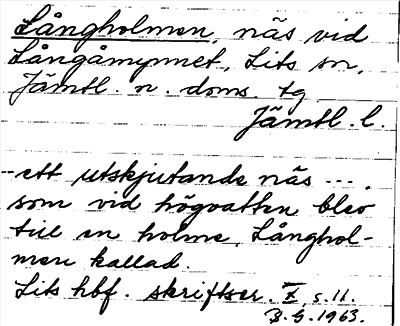 Långholmen, näs vid
Långåmynnet, Lits sn,
Jämtl. n. doms. tg
Jämtl. l.
--ett utskjutande näs ---,
som vid högvatten blev
till en holme, Långhol-
men kallad.
Lits hbf. skriftser. X, s. 11.
B. G. 1963.